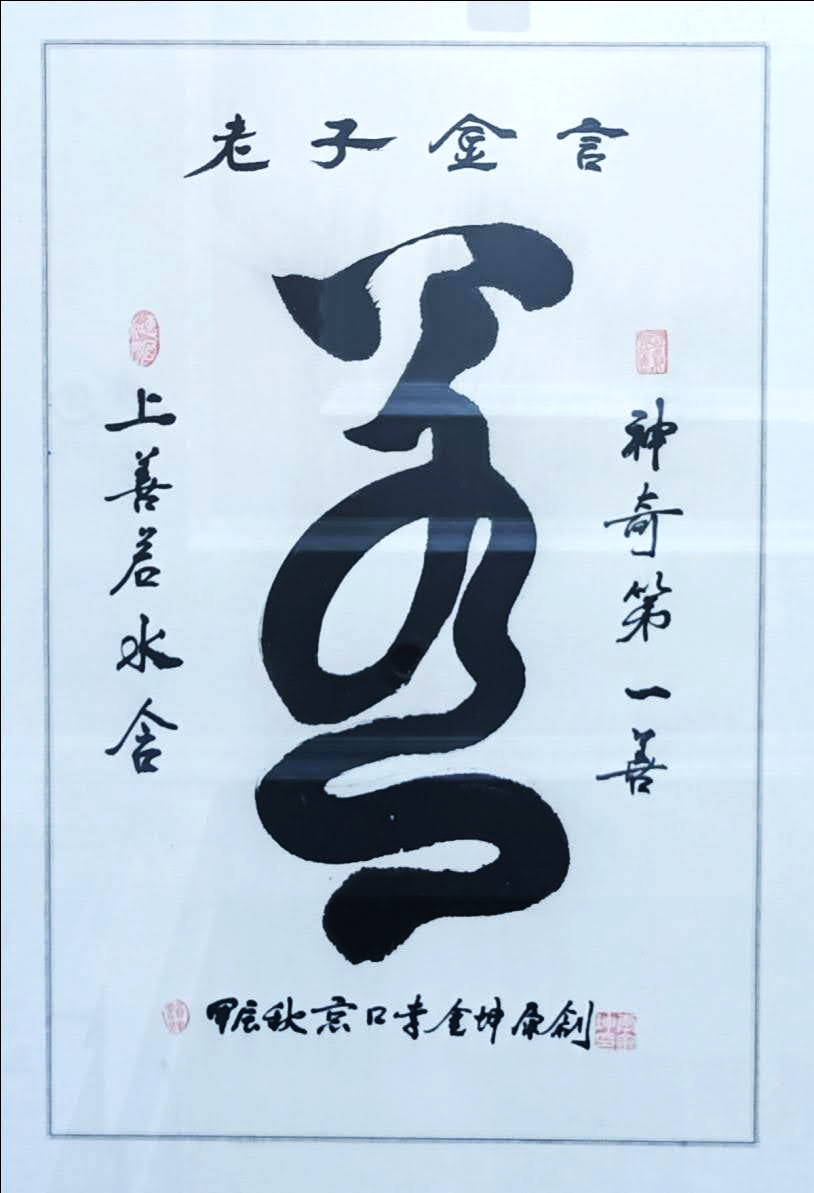 老子金言
善
神奇第一善
上善若水舍
甲辰秋京口李金坤原創